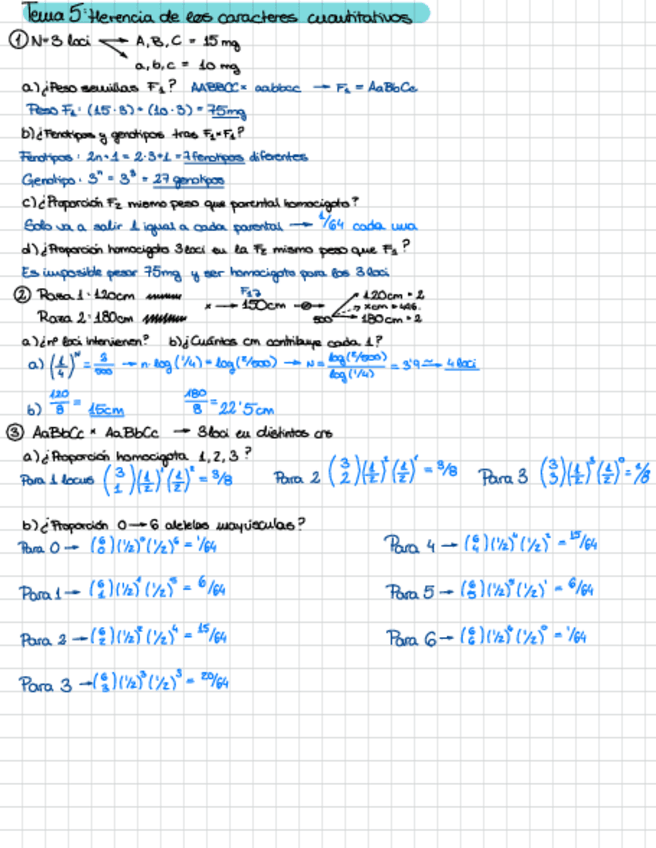 Tema 5: Herencia de los caracteres cuantitativos
① N=3 loci → A, B, C = 15 mg
→ a, b, c = 10 mg
a) ¿Peso semillas F₁? AABBCC × aabbcc → F₁ = AaBbCc
Peso F₁: (15·3) + (10·3) = 75mg
b) ¿Fenotipos y genotipos tras F₁×F₁?
Fenotipos: 2n+1 = 2·3+1 = 7 fenotipos diferentes
Genotipo: 3ⁿ = 3³ = 27 genotipos
c) ¿Proporción F₂ mismo peso que parental homocigoto?
Solo va a salir 1 igual a cada parental → 1/64 cada una
d) ¿Proporción homocigoto 3 loci en la F₂ mismo peso que F₁?
Es imposible pesar 75mg y ser homocigoto para los 3 loci
② Raza 1: 120cm
Raza 2: 180cm
× → 150cm
500 → 120cm = 2
xcm = 496
180cm = 2
a) ¿nº loci intervienen? b) ¿Cuántos cm contribuye cada 1?
a) (1/4)ᴺ = /500 → n·log(1/4) = log(2/500) → N = log(2/500)/log(1/4) = 3'9 ≃ 4 loci
b) 120/8 = 15cm 180/8 = 22'5cm
③ AaBbCc × AaBbCc → 3 loci en distintos crs
a) ¿Proporción homocigota 1, 2, 3?
Para 1 locus (3 1)(1/2)¹(1/2)² = 3/8 Para 2 (3 2)(1/2)²(1/2)¹ = 3/8 Para 3 (3 3)(1/2)³(1/2)⁰ = 1/8
b) ¿Proporción 0 → 6 alelos mayúsculas?
Para 0 → (6 0)(1/2)⁰(1/2)⁶ = 1/64
Para 1 → (6 1)(1/2)¹(1/2)⁵ = 6/64
Para 2 → (6 2)(1/2)²(1/2)⁴ = 15/64
Para 3 → (6 3)(1/2)³(1/2)³ = 20/64
Para 4 → (6 4)(1/2)⁴(1/2)² = 15/64
Para 5 → (6 5)(1/2)⁵(1/2)¹ = 6/64
Para 6 → (6 6)(1/2)⁶(1/2)⁰ = 1/64